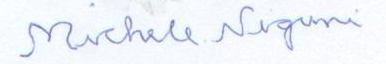 Michele Nigami